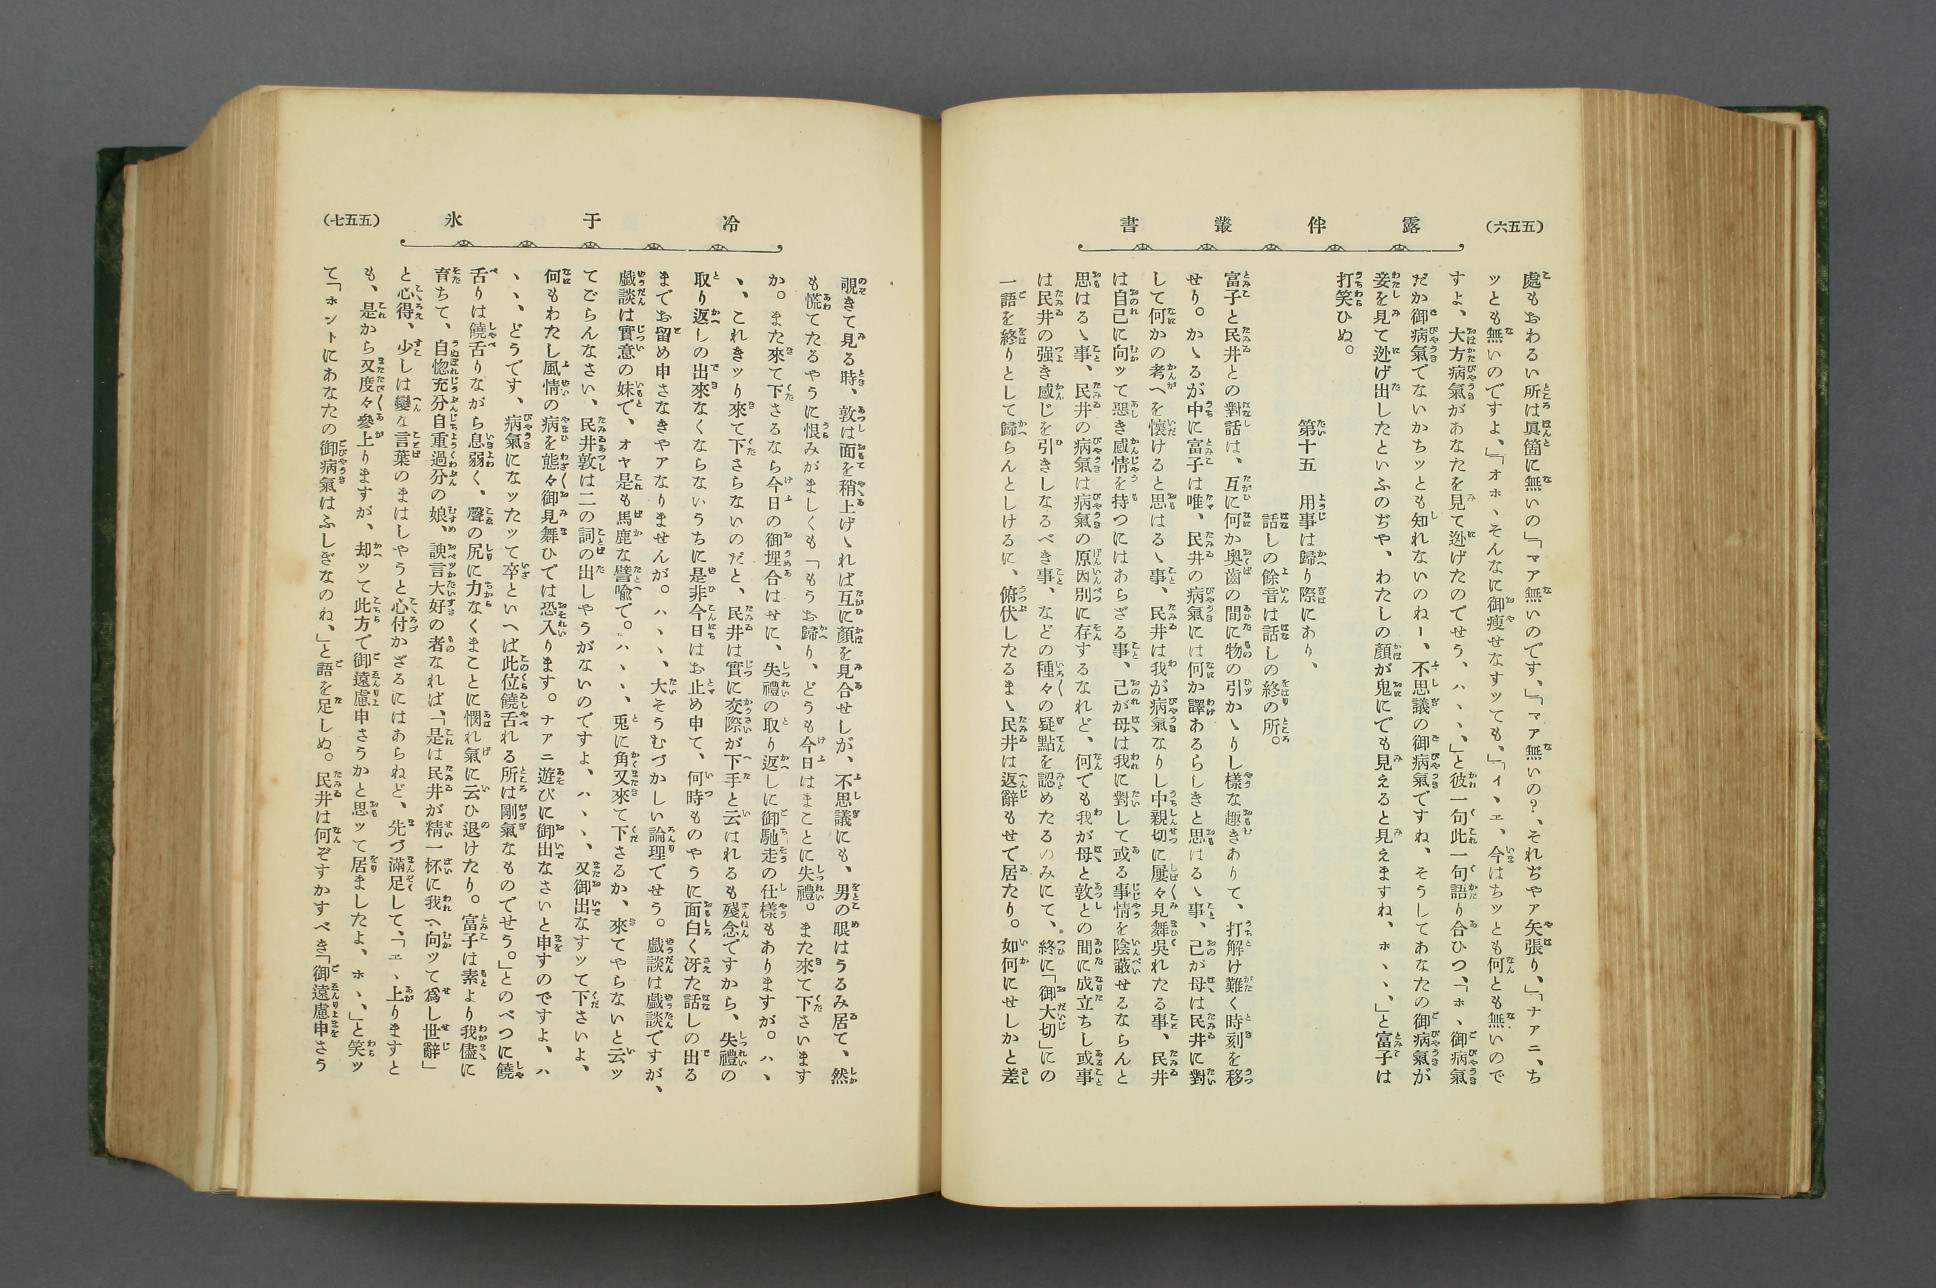 (五五六)
露伴叢書
處もおわるい所は眞箇に無いの」『マア無いのです、」『マア無いの?、それぢやア矢張り、」「ナアニ、ち
ッとも無いのですよ、」『オホヽそんなに御痩せなすッても、」「イヽエ、今はちッとも何とも無いので
すよ、大方病氣があなたを見て迯げたのでせう、ハヽヽ、」と彼一句此一句語り合ひつ、「ホヽ御病氣
だか御病氣でないかちッとも知れないのねー、不思議の御病氣ですね、そうしてあなたの御病氣が
妾を見て迯げ出したといふのぢや、わたしの顔が鬼にでも見えると見えますね、ホヽヽ、」と富子は
打笑ひぬ。
第十五 用事は歸り際にあり、
話しの餘言は話しの終の所。
富子と民井との對話は、互に何か奥齒の間に物の引かヽりし樣な趣きありて、打解け難く時刻を移
せり。かヽるが中に富子は唯、民井の病氣には何か譯あるらしきと思はるヽ事、己が母は民井に對
して何かの考へを懷けると思はるヽ事、民井は我が病氣なりし中親切に屢々見舞呉れたる事、民井
は自己に向ッて惡き感情を持つにはあらざる事、己が母は我に對して或る事情を陰蔽せるならんと
思はるヽ事、民井の病氣は病氣の原因別に存するなれど、何でも我が母と敦との間に成立ちし或事
は民井の强き感じを引きしなるべき事、などの種々の疑點を認めたるのみにて、終に「御大切」にの
一語を終りとして歸らんとしけるに、俯伏したるまヽ民井は返辭もせで居たり。如何にせしかと差
冷于氷
(五五七)
覗きて見る時、敦は面を稍上げヽれば互に顔を見合せしが、不思議にも、男の眼はうるみ居て、然
も慌てたるやうに恨みがましくも「もうお歸り、どうも今日はまことに失禮。また來て下さいます
か。また來て下さるなら今日の御埋合はせに、失禮の取り返しに御馳走の仕樣もありますが。ハヽ
ヽ、これきッり來て下さらないのだと、民井は實に交際が下手と云はれるも殘念ですから、失禮の
取り返しの出來なくならないうちに是非今日はお止め申て、何時ものやうに面白く冴た話しの出る
までお留め申さなきやアなりませんが。ハヽヽ、大そうむづかしい論理でせう。戯談は戯談ですが、
戯談は實意の妹で、オヤ是も馬鹿な譬喩で。ハヽヽ、兎に角又來て下さるか、來てやらないと云ッ
てごらんなさい、民井敦は二の詞の出しやうがないのですよ、ハヽヽ、又御出なすッて下さいよ、
何もわたし風情の病を態々御見舞ひでは恐入ります。ナアニ遊びに御出なさいと申すのですよ、ハ
ヽヽ、どうです、病氣になッたッて卒といへば此位饒舌れる所は剛氣なものでせう。」とのべつに饒
舌りは饒舌りながら息弱く、聲の尻に力なくまことに憫れ氣に云ひ退けたり。富子は素より我儘に
育ちて、自惚充分自重過分の娘、諛言大好の者なれば、「是は民井が精一杯に我へ向ッて爲し世辭」
と心得、少しは變な言葉のまはしやうと心付かざるにはあらねど、先づ滿足して、「エヽ上りますと
も、是から又度々參上りますが、却ッて此方で御遠慮申さうかと思ッて居ましたよ、ホヽ、」と笑ッ
て「ホントにあなたの御病氣はふしぎなのね、」と語を足しぬ。民井は何ぞすかすべき「御遠慮申さう